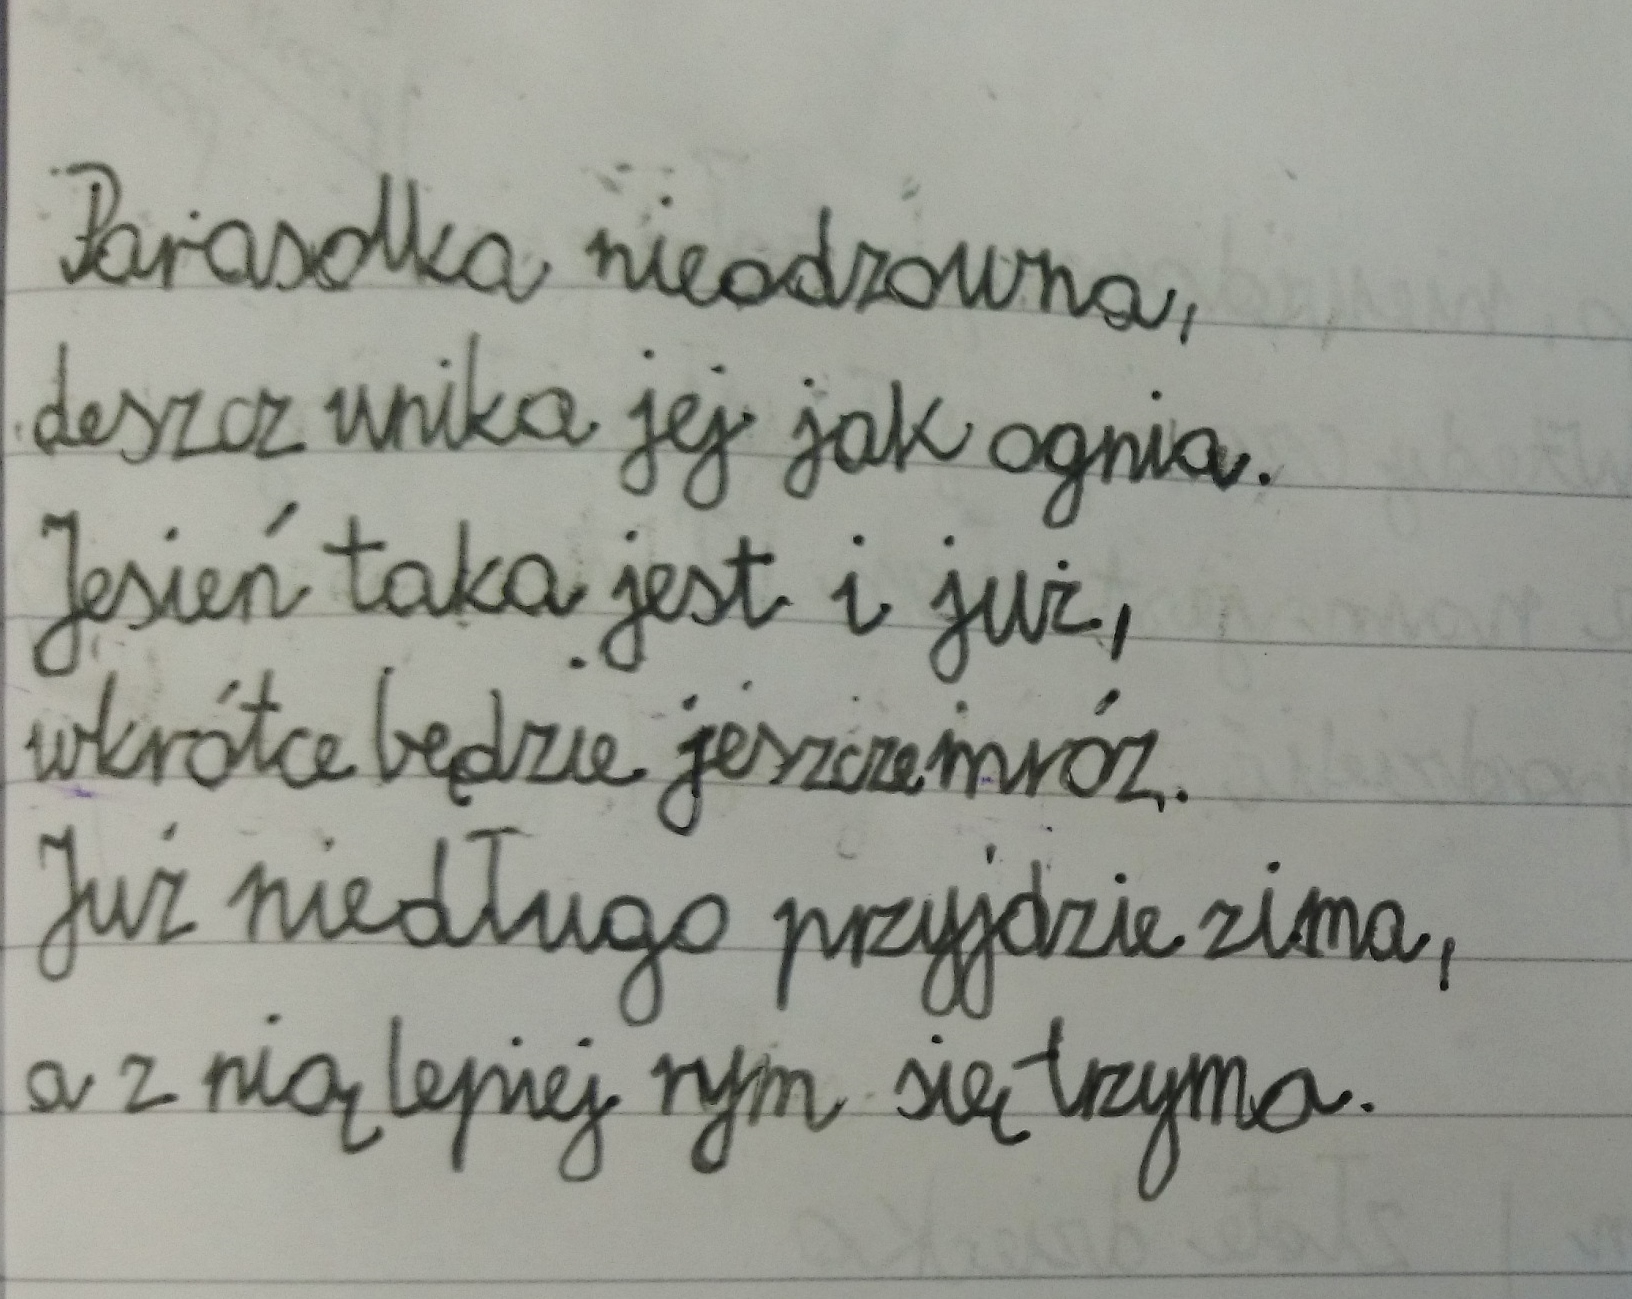 Parasolka nieodzowna,
deszcz unika jej jak ognia.
Jesień taka jest i już,
wkrótce będzie jeszcze mróz.
Już niedługo przyjdzie zima,
a z nią lepiej rym się trzyma.